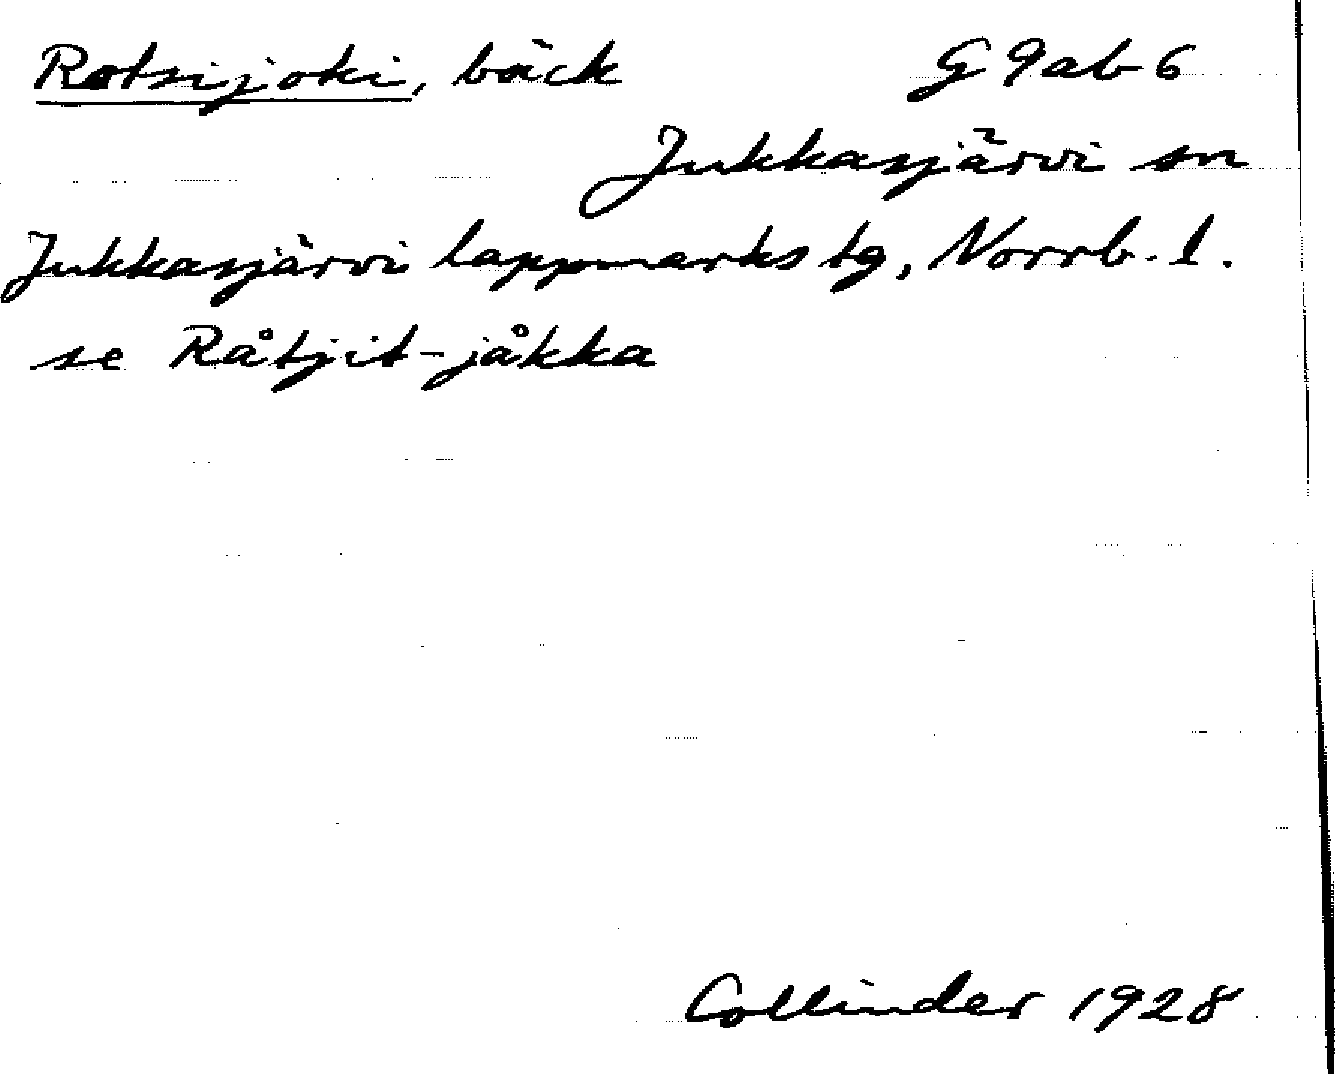 Rotsijoki, bäck G 9ab 6
Jukkasjärvi sn
Jukkasjärvi lappmarks tg, Norrb. l.
se Råtjit-jåkka
Collinder 1928